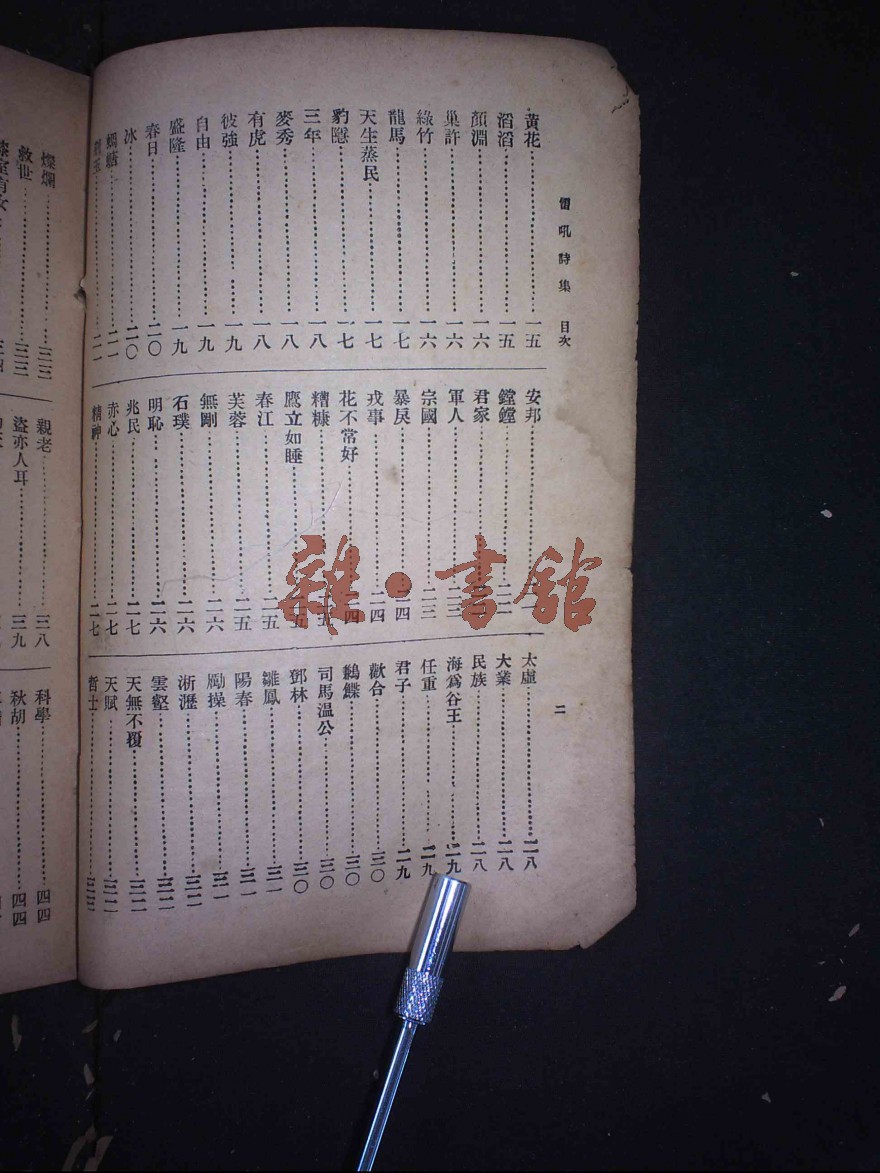 雷吼詩集 目次
二
黃花……一五
滔滔……一五
顏淵……一六
巢許……一六
綠竹……一六
龍馬……一七
天生蒸民……一七
豹隱……一七
三年……一八
麥秀……一八
有虎……一八
彼強……一九
自由……一九
盛隆……一九
春日……二〇
冰……二〇
蜩螗……二一
玉……二一
安邦
鏜鏜
君家
軍人……二三
宗國……二三
暴戾……二四
戎事……二四
花不常好……二四
糟糠……二五
鷹立如睡……二五
春江……二五
芙蓉……二五
無剛……二六
石璞……二六
明恥……二六
兆民……二七
赤心……二七
精神……二七
太虛……二八
大業……二八
民族……二八
海爲谷王……二九
任重……二九
君子……二九
歡合……三〇
鶼鰈……三〇
司馬溫公……三〇
鄧林……三〇
雛鳳……三一
陽春……三一
勵操……三一
淅瀝……三二
雲壑……三二
天無不覆……三二
天賦……三二
哲士……三三
燦爛……三三
救世……三三
室有女
親老……三八
盜亦人耳……三九
科學……四四
秋胡……四四
雜·書館